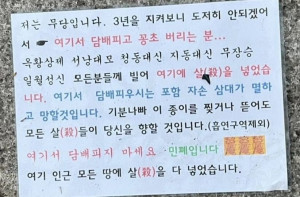 저는 무당입니다. 3년을 지켜보니 도저히 안되겠어
서 여기서 담배피고 꽁초 버리는 분...
옥황상제 서낭대모 청동대신 지동대신 무장승
일월성신 모든분들께 빌어 여기에 살(殺)을 넣었습
니다. 여기서 담배피우시는 포함 자손 삼대가 멸하
고 망할것입니다. 기분나빠 이 종이를 찢거나 뜯어도
모든 살(殺)들이 당신을 향할 것입니다.(흡연구역제외)
여기서 담배피지 마세요 민폐입니다
여기 인근 모든 땅에 살(殺)을 다 넣었습니다.